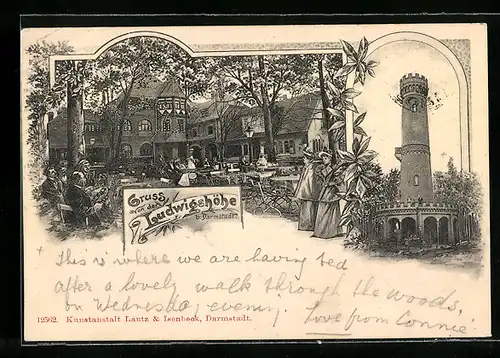 Gruss
von der
Ludwigshöhe
b. Darmstadt.
This is where we are having ted
after a lovely walk through the woods,
on Wednesday evening.
Love from Connie
12562. Kunstanstalt Lautz & Isenbeck, Darmstadt.